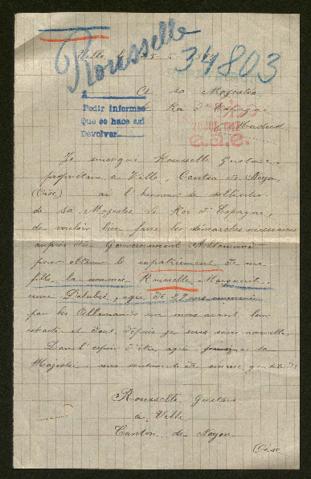 Rousselle
34803
Ville le
A
Pedir informes
Que se hace así
Devolver
A sa Majesté
Roi d'Espagne
à Madrid
Je soussigné Rousselle Gustave
propriétaire à Ville, Canton de Noyon
(Oise) a l'honneur de solliciter
de Sa Majesté le Roi d'Espagne,
de vouloir bien faire les démarches nécessaires
auprès du Gouvernement Allemand
pour obtenir le rapatriement de ma
fille la nommée Rousselle Marguerite
âgée de 22 ans
par les Allemands un mois avant leur
et dont depuis je suis sans nouvelle
Dans l'espoir d'être agréé sa
Majesté mes sentiments de
Rousselle Gustave
à Ville
Canton de Noyon
(Oise